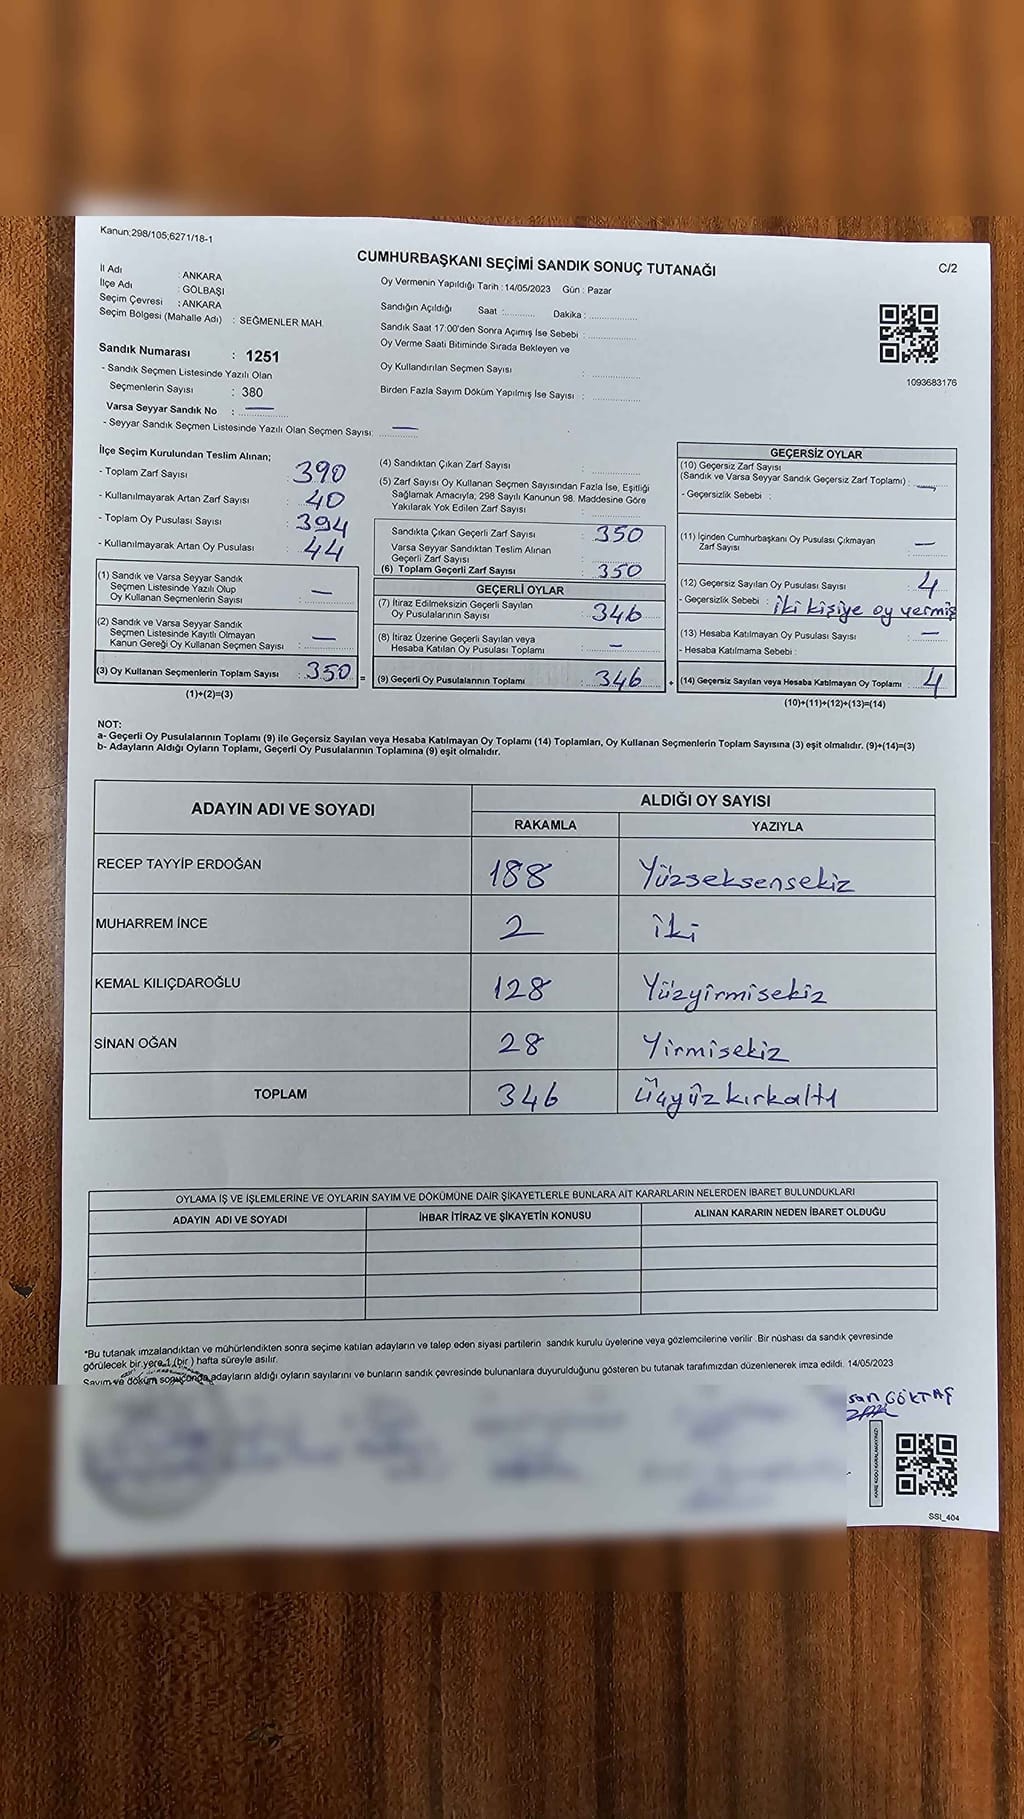 Kanun:298/105;6271/18-1
CUMHURBAŞKANI SEÇİMİ SANDIK SONUÇ TUTANAĞI
C/2
İl Adı : ANKARA
İlçe Adı : GÖLBAŞI
Seçim Çevresi : ANKARA
Seçim Bölgesi (Mahalle Adı) : SEĞMENLER MAH.
Sandık Numarası : 1251
- Sandık Seçmen Listesinde Yazılı Olan
Seçmenlerin Sayısı : 380
Varsa Seyyar Sandık No : —
- Seyyar Sandık Seçmen Listesinde Yazılı Olan Seçmen Sayısı: —
Oy Vermenin Yapıldığı Tarih : 14/05/2023 Gün : Pazar
Sandığın Açıldığı Saat :........... Dakika :................
Sandık Saat 17:00'den Sonra Açımış İse Sebebi :................
Oy Verme Saati Bitiminde Sırada Bekleyen ve
Oy Kullandırılan Seçmen Sayısı :................
Birden Fazla Sayım Döküm Yapılmış İse Sayısı :................
1093683176
İlçe Seçim Kurulundan Teslim Alınan;
- Toplam Zarf Sayısı : 390
- Kullanılmayarak Artan Zarf Sayısı : 40
- Toplam Oy Pusulası Sayısı : 394
- Kullanılmayarak Artan Oy Pusulası : 44
(1) Sandık ve Varsa Seyyar Sandık
Seçmen Listesinde Yazılı Olup
Oy Kullanan Seçmenlerin Sayısı : —
(2) Sandık ve Varsa Seyyar Sandık
Seçmen Listesinde Kayıtlı Olmayan
Kanun Gereği Oy Kullanan Seçmen Sayısı : —
(3) Oy Kullanan Seçmenlerin Toplam Sayısı : 350
(1)+(2)=(3)
(4) Sandıktan Çıkan Zarf Sayısı :................
(5) Zarf Sayısı Oy Kullanan Seçmen Sayısından Fazla İse, Eşitliği
Sağlamak Amacıyla; 298 Sayılı Kanunun 98. Maddesine Göre
Yakılarak Yok Edilen Zarf Sayısı :................
Sandıkta Çıkan Geçerli Zarf Sayısı : 350
Varsa Seyyar Sandıktan Teslim Alınan
Geçerli Zarf Sayısı :
(6) Toplam Geçerli Zarf Sayısı : 350
GEÇERLİ OYLAR
(7) İtiraz Edilmeksizin Geçerli Sayılan
Oy Pusulalarının Sayısı : 346
(8) İtiraz Üzerine Geçerli Sayılan veya
Hesaba Katılan Oy Pusulası Toplamı : —
= (9) Geçerli Oy Pusulalarının Toplamı : 346
GEÇERSİZ OYLAR
(10) Geçersiz Zarf Sayısı
(Sandık ve Varsa Seyyar Sandık Geçersiz Zarf Toplamı) : —
- Geçersizlik Sebebi :
(11) İçinden Cumhurbaşkanı Oy Pusulası Çıkmayan
Zarf Sayısı : —
(12) Geçersiz Sayılan Oy Pusulası Sayısı : 4
- Geçersizlik Sebebi : İki kişiye oy vermiş
(13) Hesaba Katılmayan Oy Pusulası Sayısı : —
- Hesaba Katılmama Sebebi :
+ (14) Geçersiz Sayılan veya Hesaba Katılmayan Oy Toplamı : 4
(10)+(11)+(12)+(13)=(14)
NOT:
a- Geçerli Oy Pusulalarının Toplamı (9) ile Geçersiz Sayılan veya Hesaba Katılmayan Oy Toplamı (14) Toplamları, Oy Kullanan Seçmenlerin Toplam Sayısına (3) eşit olmalıdır. (9)+(14)=(3)
b- Adayların Aldığı Oyların Toplamı, Geçerli Oy Pusulalarının Toplamına (9) eşit olmalıdır.
ADAYIN ADI VE SOYADI ALDIĞI OY SAYISI
RAKAMLA YAZIYLA
RECEP TAYYİP ERDOĞAN 188 Yüzseksensekiz
MUHARREM İNCE 2 iki
KEMAL KILIÇDAROĞLU 128 Yüzyirmisekiz
SİNAN OĞAN 28 Yirmisekiz
TOPLAM 346 Üçyüzkırkaltı
OYLAMA İŞ VE İŞLEMLERİNE VE OYLARIN SAYIM VE DÖKÜMÜNE DAİR ŞİKAYETLERLE BUNLARA AİT KARARLARIN NELERDEN İBARET BULUNDUKLARI
ADAYIN ADI VE SOYADI İHBAR İTİRAZ VE ŞİKAYETİN KONUSU ALINAN KARARIN NEDEN İBARET OLDUĞU
*Bu tutanak imzalandıktan ve mühürlendikten sonra seçime katılan adayların ve talep eden siyasi partilerin sandık kurulu üyelerine veya gözlemcilerine verilir .Bir nüshası da sandık çevresinde
görülecek bir yere 1 (bir ) hafta süreyle asılır.
Sayım ve döküm sonucunda adayların aldığı oyların sayılarını ve bunların sandık çevresinde bulunanlara duyurulduğunu gösteren bu tutanak tarafımızdan düzenlenerek imza edildi. 14/05/2023
san GÖKTAŞ
SSI_404